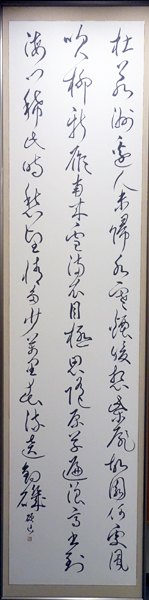 杜若洲邊人未歸水寒煙暖想柴扉故園何處風
吹柳新雁南來雪滿衣目極思隨原草遍浪高書到
海門稀此時愁望情多少萬里春流遶釣磯